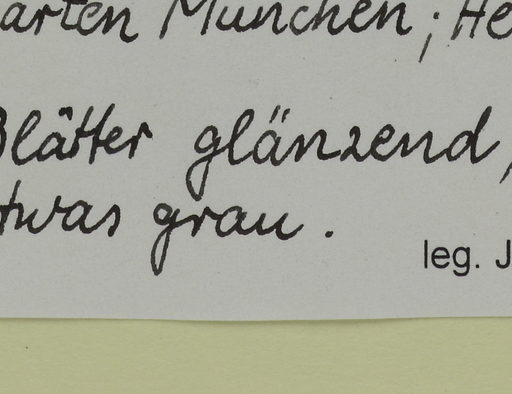 arten München; He
Blätter glänzend,
twas grau.
leg. J